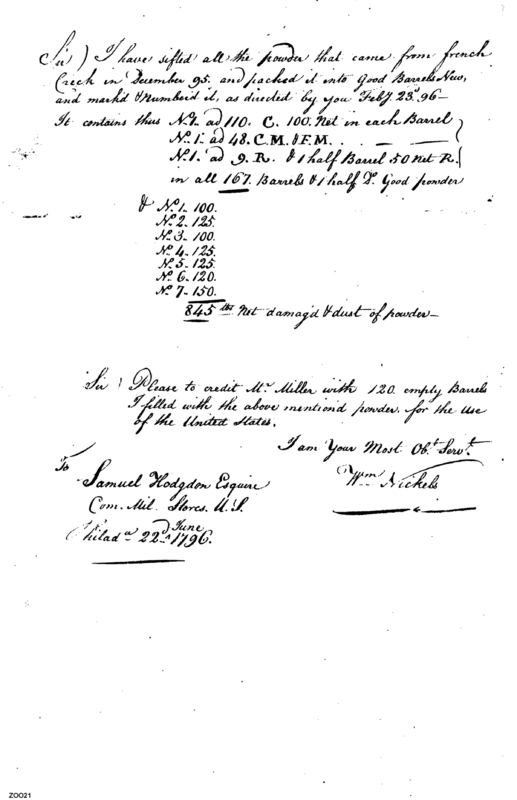 Sir ) I have sifted all the powder that came from french
Creek in December 95. and packed it into Good Barrels New,
and mark'd & Number'd it, as directed by you Feby. 23d. 96—
It contains thus No. 1. ad 110. C. 100. Net in each Barrel
No. 1. ad 48. C.M. & F.M.
No. 1. ad 9. R. & 1 half Barrel 50 Net R.
in all 167. Barrels & 1 half Do. Good powder
& No. 1- 100.
No. 2- 125.
No. 3- 100.
No. 4- 125.
No. 5- 125.
No. 6- 120.
No. 7- 150.
845 lbs Net damag'd & dust of powder—
Sir ) Please to credit Mr. Miller with 120. empty Barrels
I filled with the above mention'd powder. for the Use
of the United States.
I am Your Most Obt. Servt.
Wm Nickels
To
Samuel Hodgdon Esquire
Com. Mil. Stores. U.S.
Philada. 22d. June 1796.
ZOO21